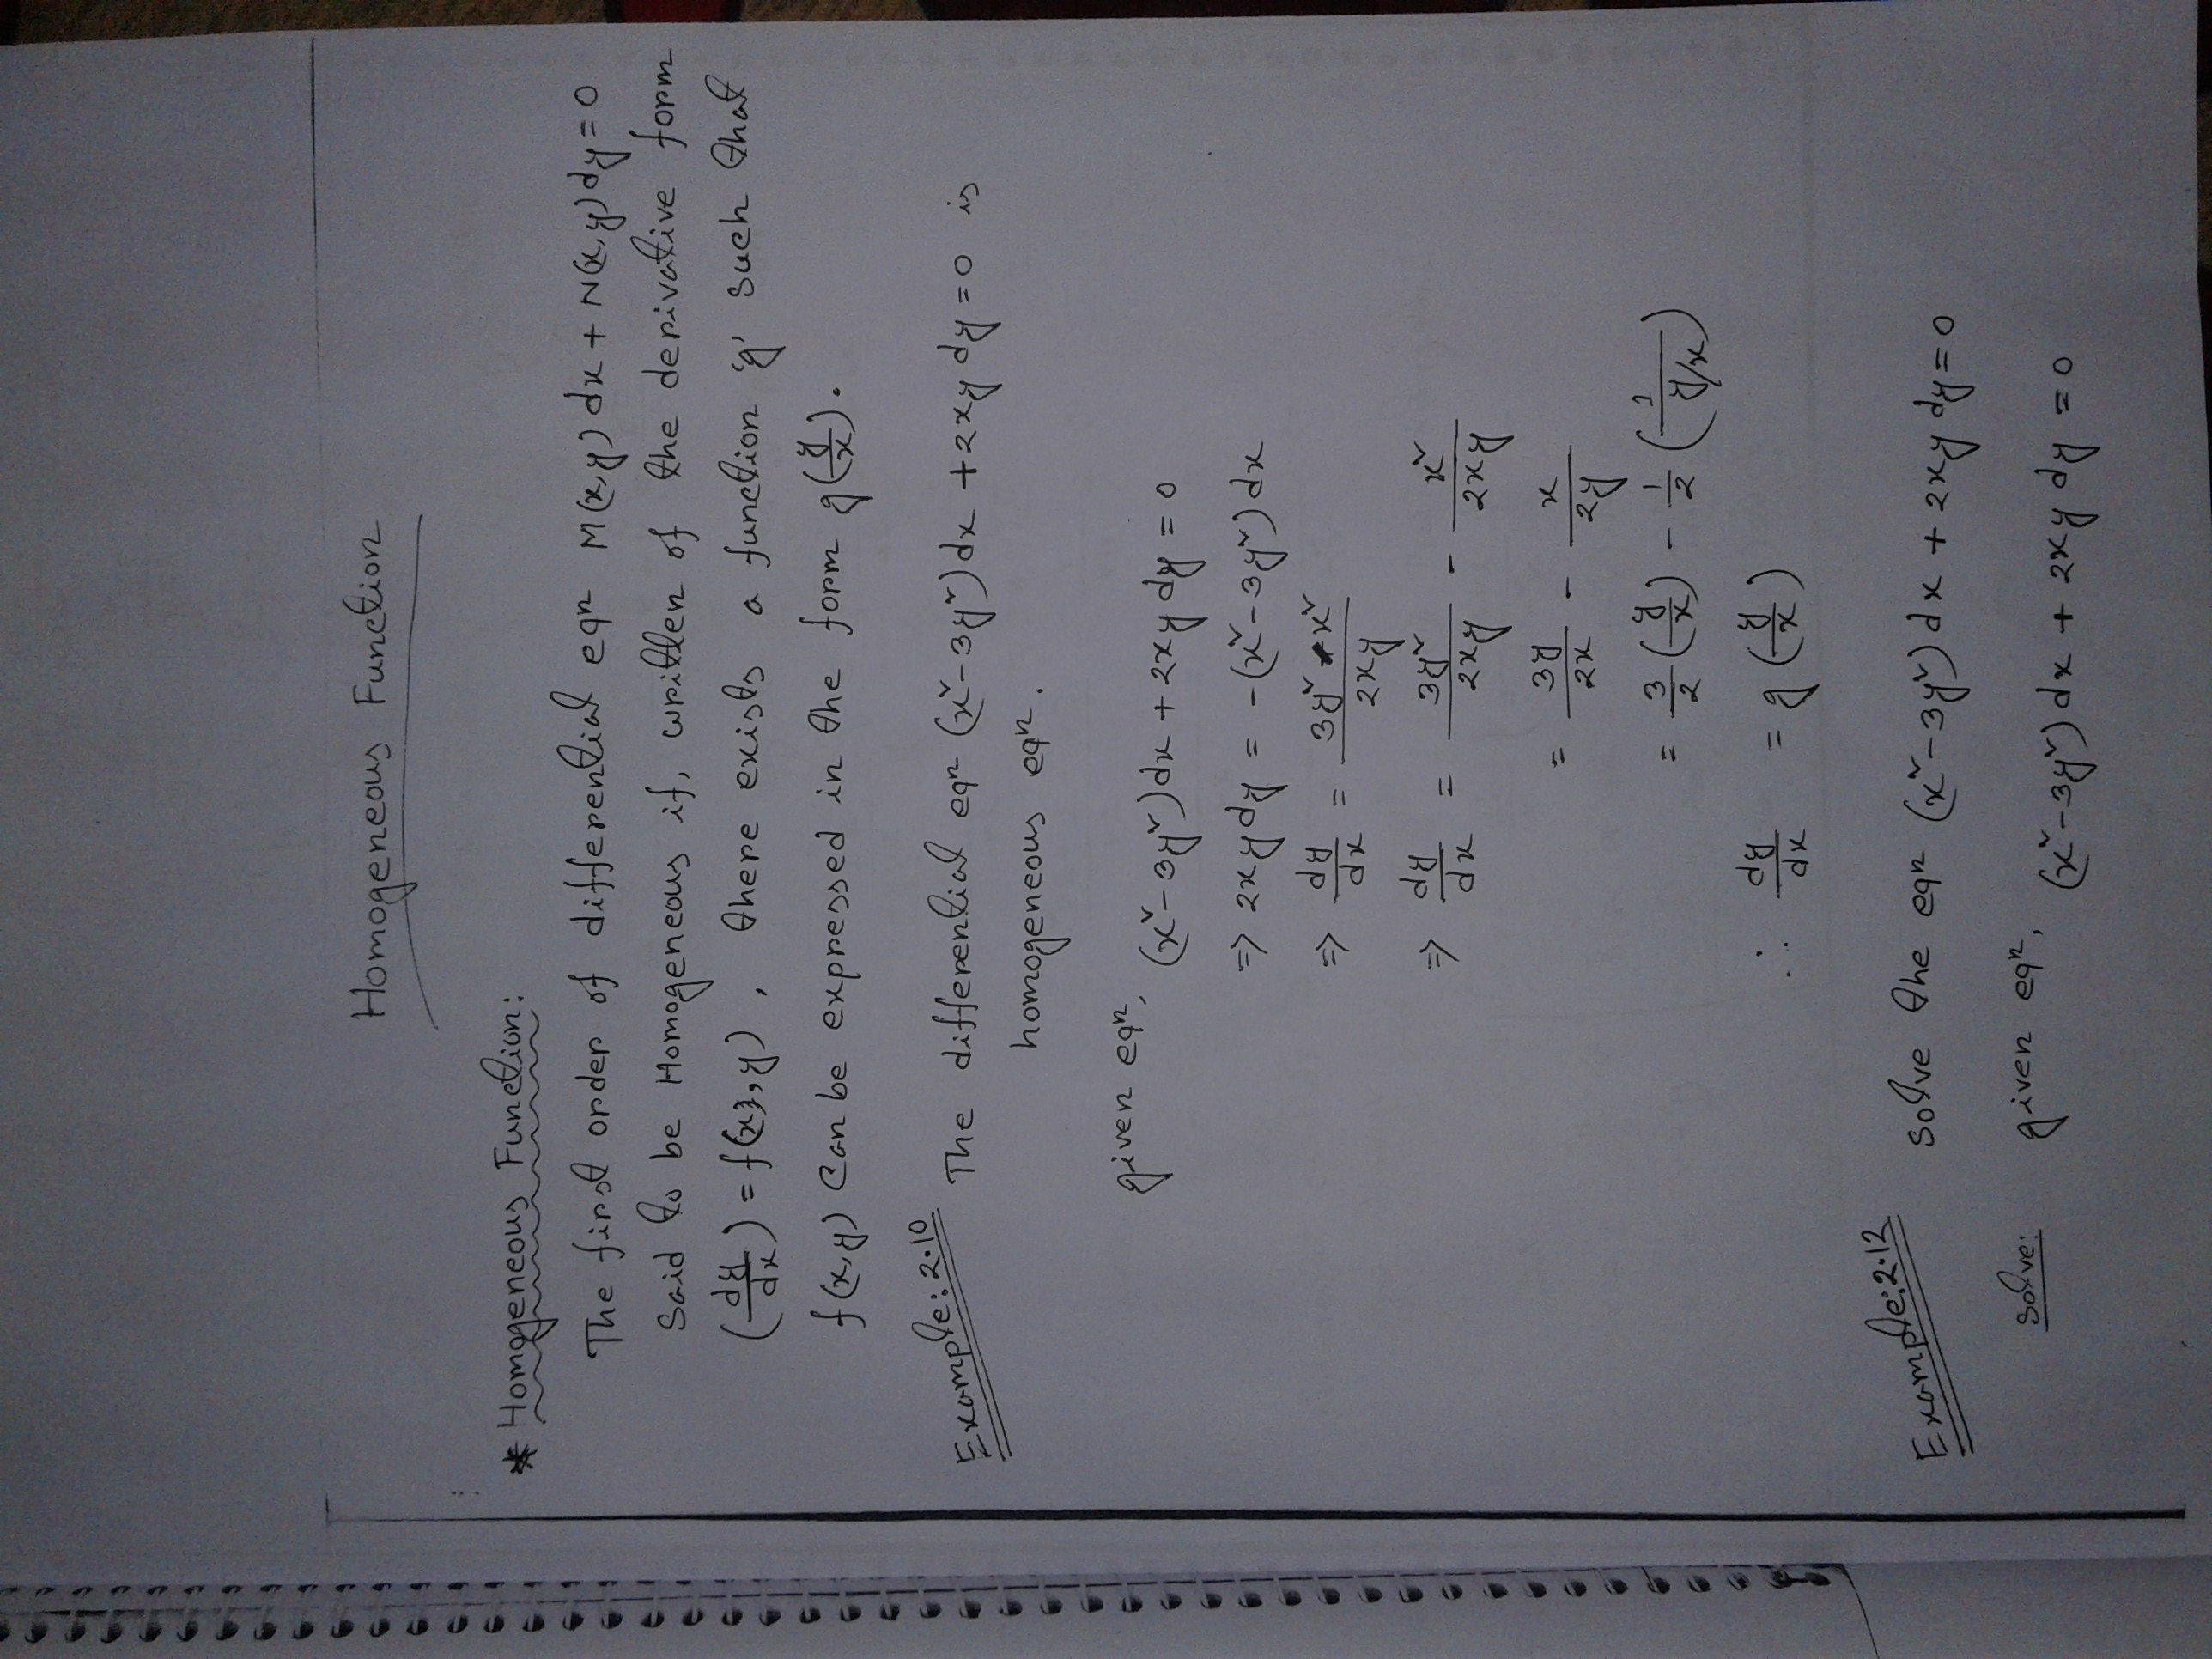 Homogeneous Function
* Homogeneous Function:
The first order of differential eqⁿ M(x,y) dx + N(x,y) dy = 0
Said to be Homogeneous if, written of the derivative form
(dy/dx) = f(x,y), there exists a function 'g' such that
f(x,y) Can be expressed in the form g(y/x).
Example: 2.10 The differential eqⁿ (x² - 3y²) dx + 2xy dy = 0 is
homogeneous eqⁿ.
given eqⁿ,
(x² - 3y²) dx + 2xy dy = 0
⇒ 2xy dy = -(x² - 3y²) dx
⇒ dy/dx = (3y² - x²)/(2xy)
⇒ dy/dx = 3y²/2xy - x²/2xy
= 3y/2x - x/2y
= 3/2 (y/x) - 1/2 (1/(y/x))
∴ dy/dx = g(y/x)
Example: 2.12 solve the eqⁿ (x² - 3y²) dx + 2xy dy = 0
Solve: given eqⁿ,
(x² - 3y²) dx + 2xy dy = 0